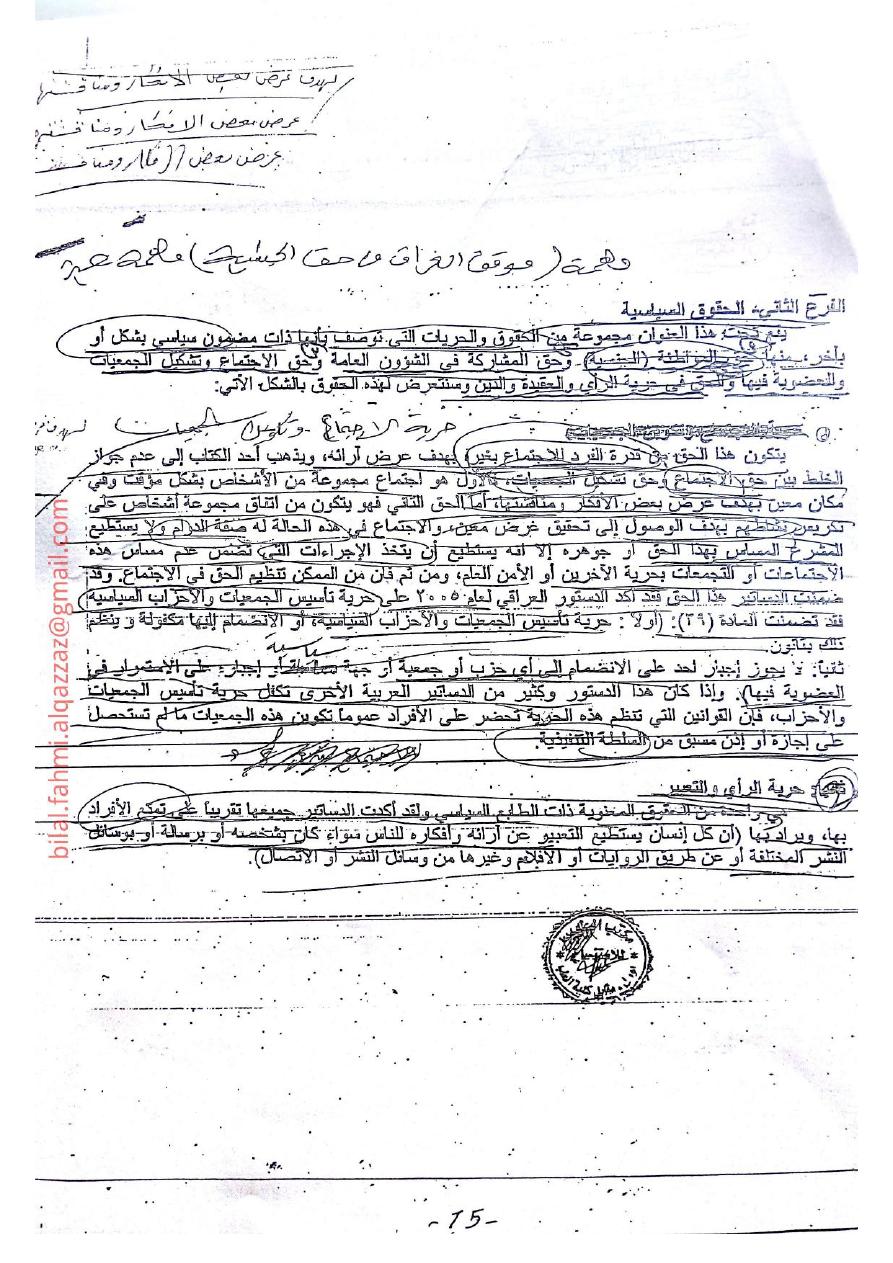 لهدف عرض بعض الافكار ومناقشتها
عرض بعض الافكار ومناقشتها
عرض بعض
ومهمة (موقف العراق من حق الجنسية) مهمة
الفرع الثاني: الحقوق السياسية
يقع تحت هذا العنوان مجموعة من الحقوق والحريات التي توصف بأنها ذات مضمون سياسي بشكل أو
بآخر، منها حق المواطنة (الجنسية) وحق المشاركة في الشؤون العامة وحق الاجتماع وتشكيل الجمعيات
والعضوية فيها والحق في حرية الرأي والعقيدة والدين وسنتعرض لهذه الحقوق بالشكل الآتي:
حرية الاجتماع وتكوين الجمعيات
يتكون هذا الحق من قدرة الفرد للاجتماع بغيره بهدف عرض آرائه، ويذهب أحد الكتاب إلى عدم جواز
الخلط بين حق الاجتماع وحق تشكيل الجمعيات، فالأول هو اجتماع مجموعة من الأشخاص بشكل مؤقت وفي
مكان معين بهدف عرض بعض الأفكار ومناقشتها، أما الحق الثاني فهو يتكون من اتفاق مجموعة أشخاص على
تكريس نشاطهم بهدف الوصول إلى تحقيق غرض معين، والاجتماع في هذه الحالة له صفة الدوام ولا يستطيع
المشرع المساس بهذا الحق أو جوهره إلا انه يستطيع أن يتخذ الإجراءات التي تضمن عدم مساس هذه
الاجتماعات أو التجمعات بحرية الآخرين أو الأمن العام، ومن ثم فان من الممكن تنظيم الحق في الاجتماع. وقد
ضمنت الدساتير هذا الحق فقد اكد الدستور العراقي لعام ٢٠٠٥ على حرية تأسيس الجمعيات والأحزاب السياسية
فقد تضمنت المادة (٣٩): (أولاً: حرية تأسيس الجمعيات والأحزاب السياسية، أو الانضمام إليها مكفولة و ينظم
ذلك بقانون.
سياسية
ثانياً: لا يجوز إجبار احد على الانضمام إلى أي حزب أو جمعية أو جهة أو إجباره على الاستمرار في
العضوية فيها). وإذا كان هذا الدستور وكثير من الدساتير العربية الأخرى تكفل حرية تأسيس الجمعيات
والأحزاب، فإن القوانين التي تنظم هذه الحرية تحضر على الأفراد عموماً تكوين هذه الجمعيات ما لم تستحصل
على إجازة أو إذن مسبق من السلطة التنفيذية.
حرية الرأي والتعبير
واحدة من الحقوق المعنوية ذات الطابع السياسي ولقد أكدت الدساتير جميعها تقريباً على تمكم الأفراد
بها، ويراد بها (أن كل إنسان يستطيع التعبير عن آرائه وأفكاره للناس سواء كان بشخصه أو برسالة أو بوسائل
النشر المختلفة أو عن طريق الروايات أو الأفلام وغيرها من وسائل النشر أو الاتصال).
مكتب
-15-
bilal.fahmi.alqazzaz@gmail.com